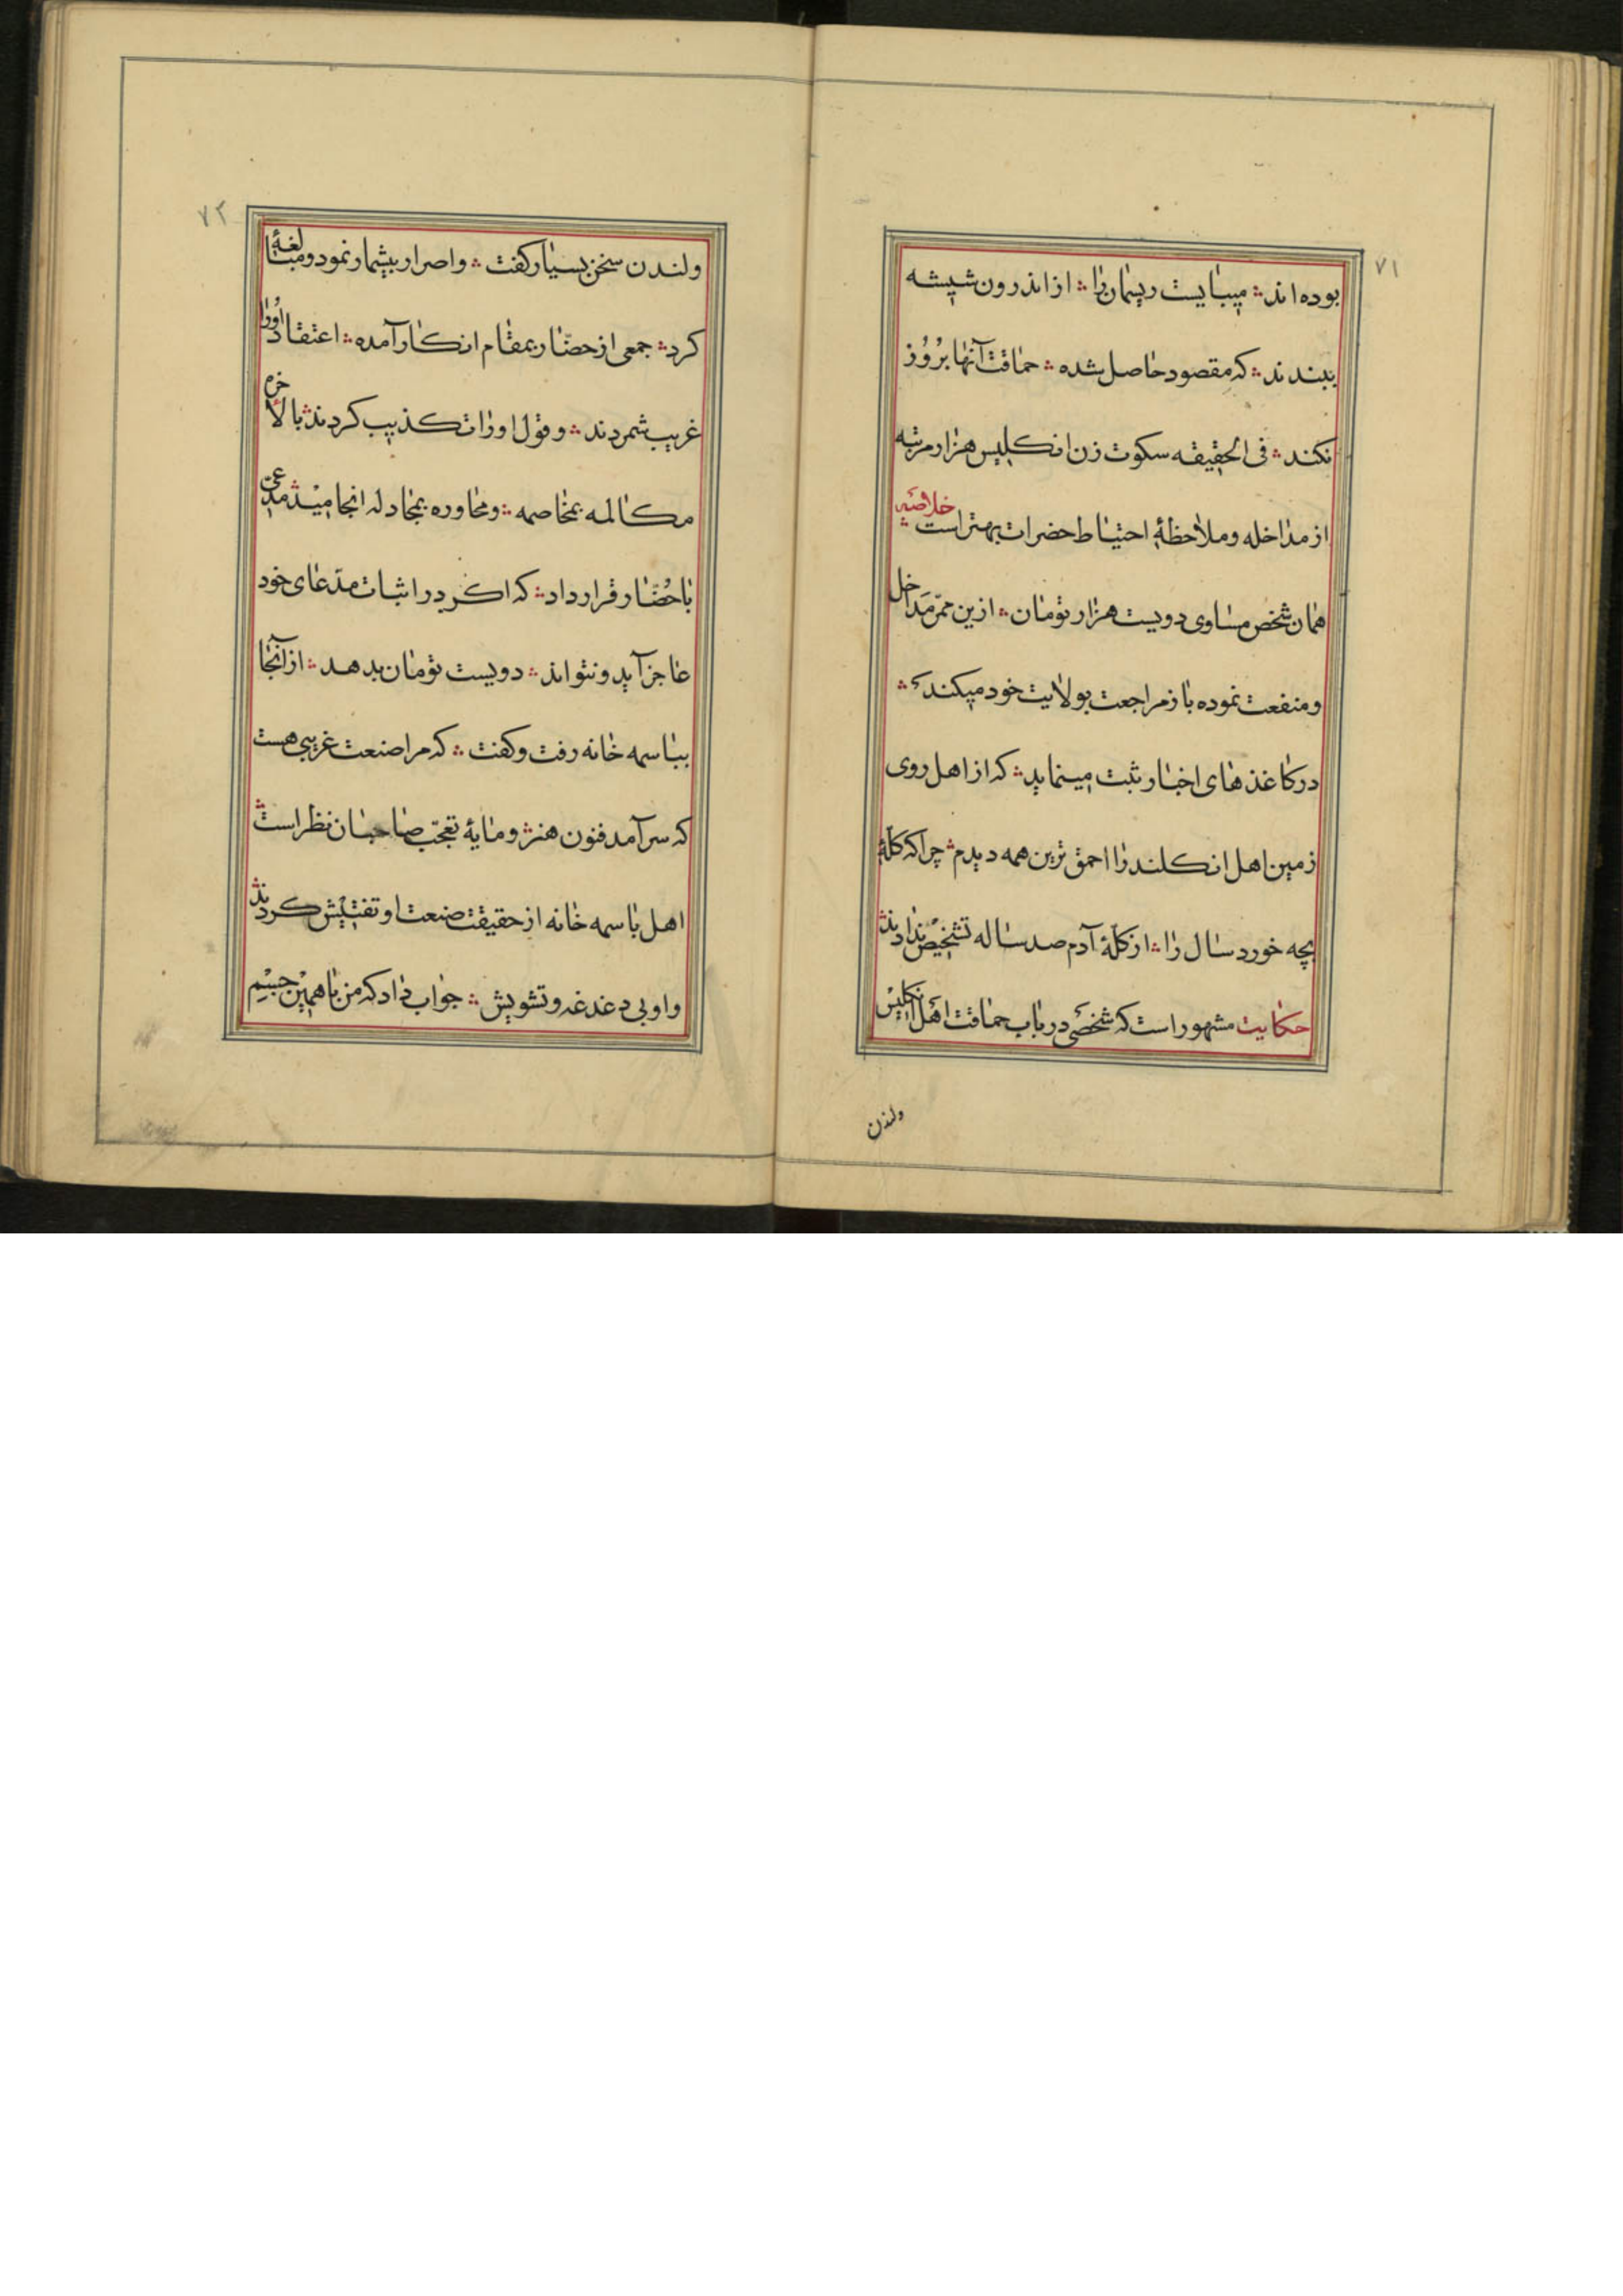 ۷۱
بوده اند ؞ میبایست ریسمان را ؞ از اندرون شیشه
ببندند ؞ که مقصود حاصل شده ؞ حماقت آنها بُروُز
نکند ؞ فی الحقیقه سکوت زن انکلیس هزار مرتبه
از مداخله و ملاحظهٔ احتیاط حضرات بهتر است ؞ خلاصه
همان شخص مساوی دویست هزار تومان ؞ ازین ممرّ مَداخل
و منفعت نموده باز مراجعت بولایت خود میکند ؞
در کاغذهای اخبار ثبت مینماید ؞ که از اهل روی
زمین اهل انکلند را احمق ترین همه دیدم ؞ چرا که کلّهٔ
بچه خورد سال را ؞ از کلّهٔ آدم صد ساله تشخیص ندادند ؞
حکایت مشهور است که شخصی در باب حماقت اهل انکلیس
ولندن
۷۲
ولندن سخن بسیار کفت ؞ و اصرار بیشمار نمود و مبالغهٔ
کرد ؞ جمعی از حضّار بمقام انکار آمده ؞ اعتقاد اوُرا
غریب شمردند ؞ و قول اورا تکذیب کردند ؞ بالأخره
مکالمه بمخاصمه ؞ و محاوره بمجادله انجامید ؞ مدّعی
با حُضّار قرار داد ؞ که اکر در اثبات مدّعای خود
عاجز آید و نتواند ؞ دویست تومان بدهد ؞ از آنجا
بباسمه خانه رفت و کفت ؞ که مرا صنعت غریبی هست
که سرآمد فنون هنر ؞ و مایهٔ تعجّب صاحبان نظر است ؞
اهل باسمه خانه از حقیقت صنعت او تفتیش کردند ؞
و او بی دغدغه و تشویش ؞ جواب داد که من با همین جسم